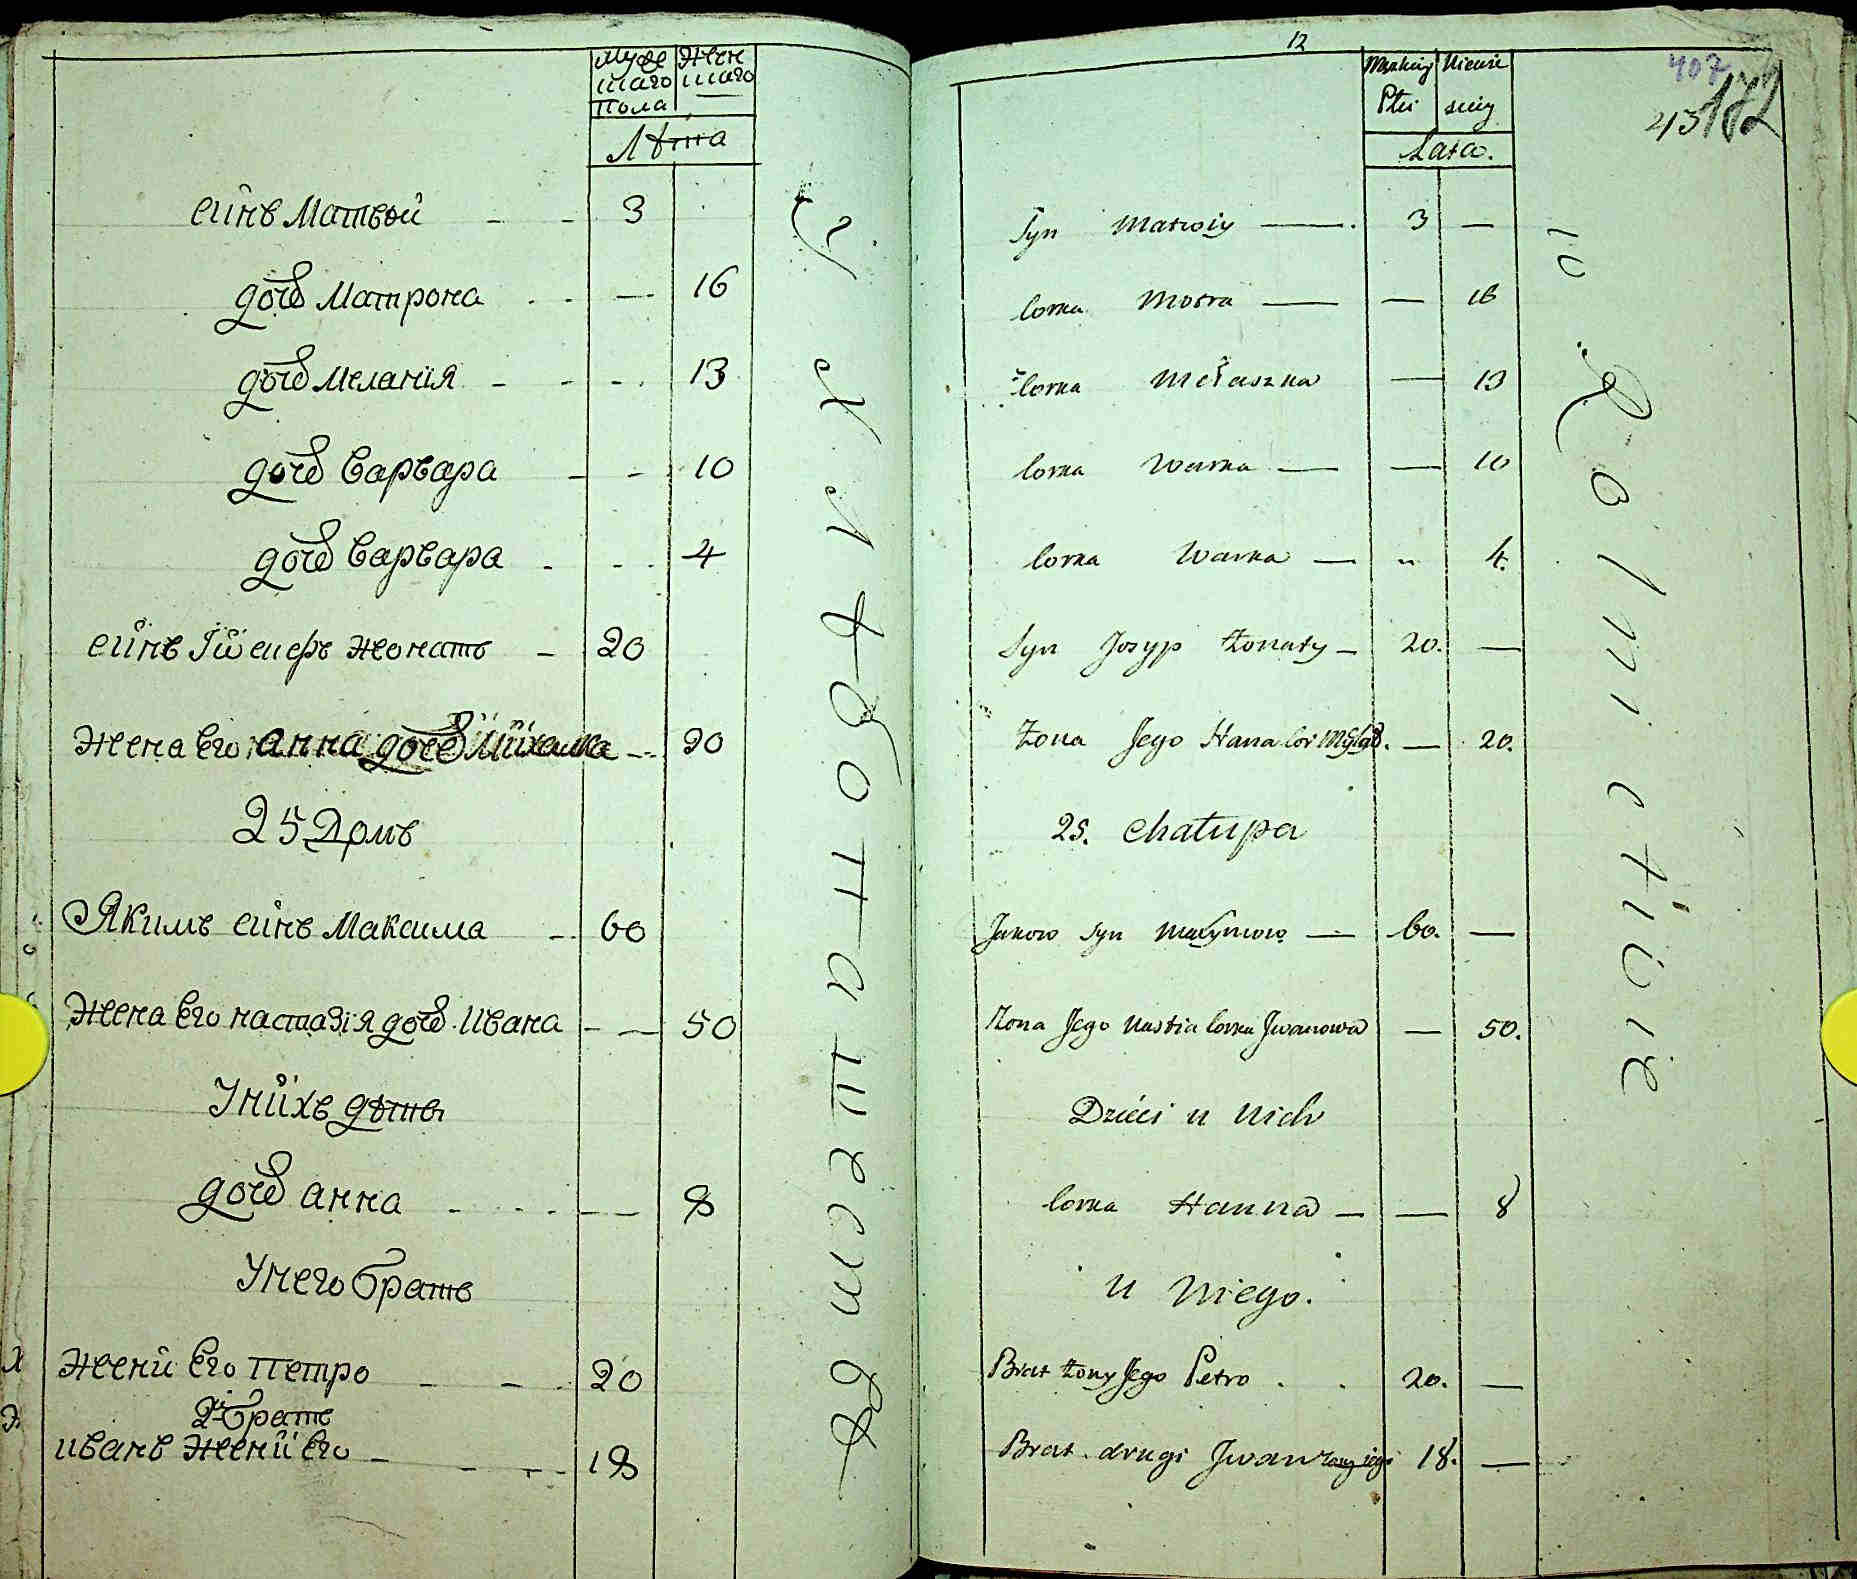 муже жен
скаго скаго
пола
Лѣта
сынъ Матвѣй - - 3
дочь Матрона - - — 16
дочь Меланія - - - 13
дочь Варвара - - 10
дочь Варвара - - - 4
сынъ Іосифъ женатъ - 20
Жена Его анна дочь Михайла - 20
25 Домъ
Якимъ сынъ Максима - 60
Жена Его настазія дочь Ивана - — 50
У нихъ дѣти
дочь анна - - - — 8
У него братъ
жены Его петро - - 20
2й братъ
иванъ жены Его - - - 18
хлѣбопашест
12
Męskiey Niewie
Płci sciey
Lata.
407
43
172
Syn Matwiy — 3 —
Corka Motra — — 16
Corka Mełaszka — 13
Corka Warka — — 10
Corka Warka — " 4.
Syn Josyp żonaty — 20. —
Żona Jego Hana cor — 20.
25. Chałupa
Jakow Syn Maxymow — 60. —
Żona Jego Nastia corka Jwanowa — 50.
Dzieci u nich
Corka Hanna — — 8
u niego.
Brat żony Jego Petro . . 20. —
Brat drugi Jwan żony jego 18. —
Rolnictwie